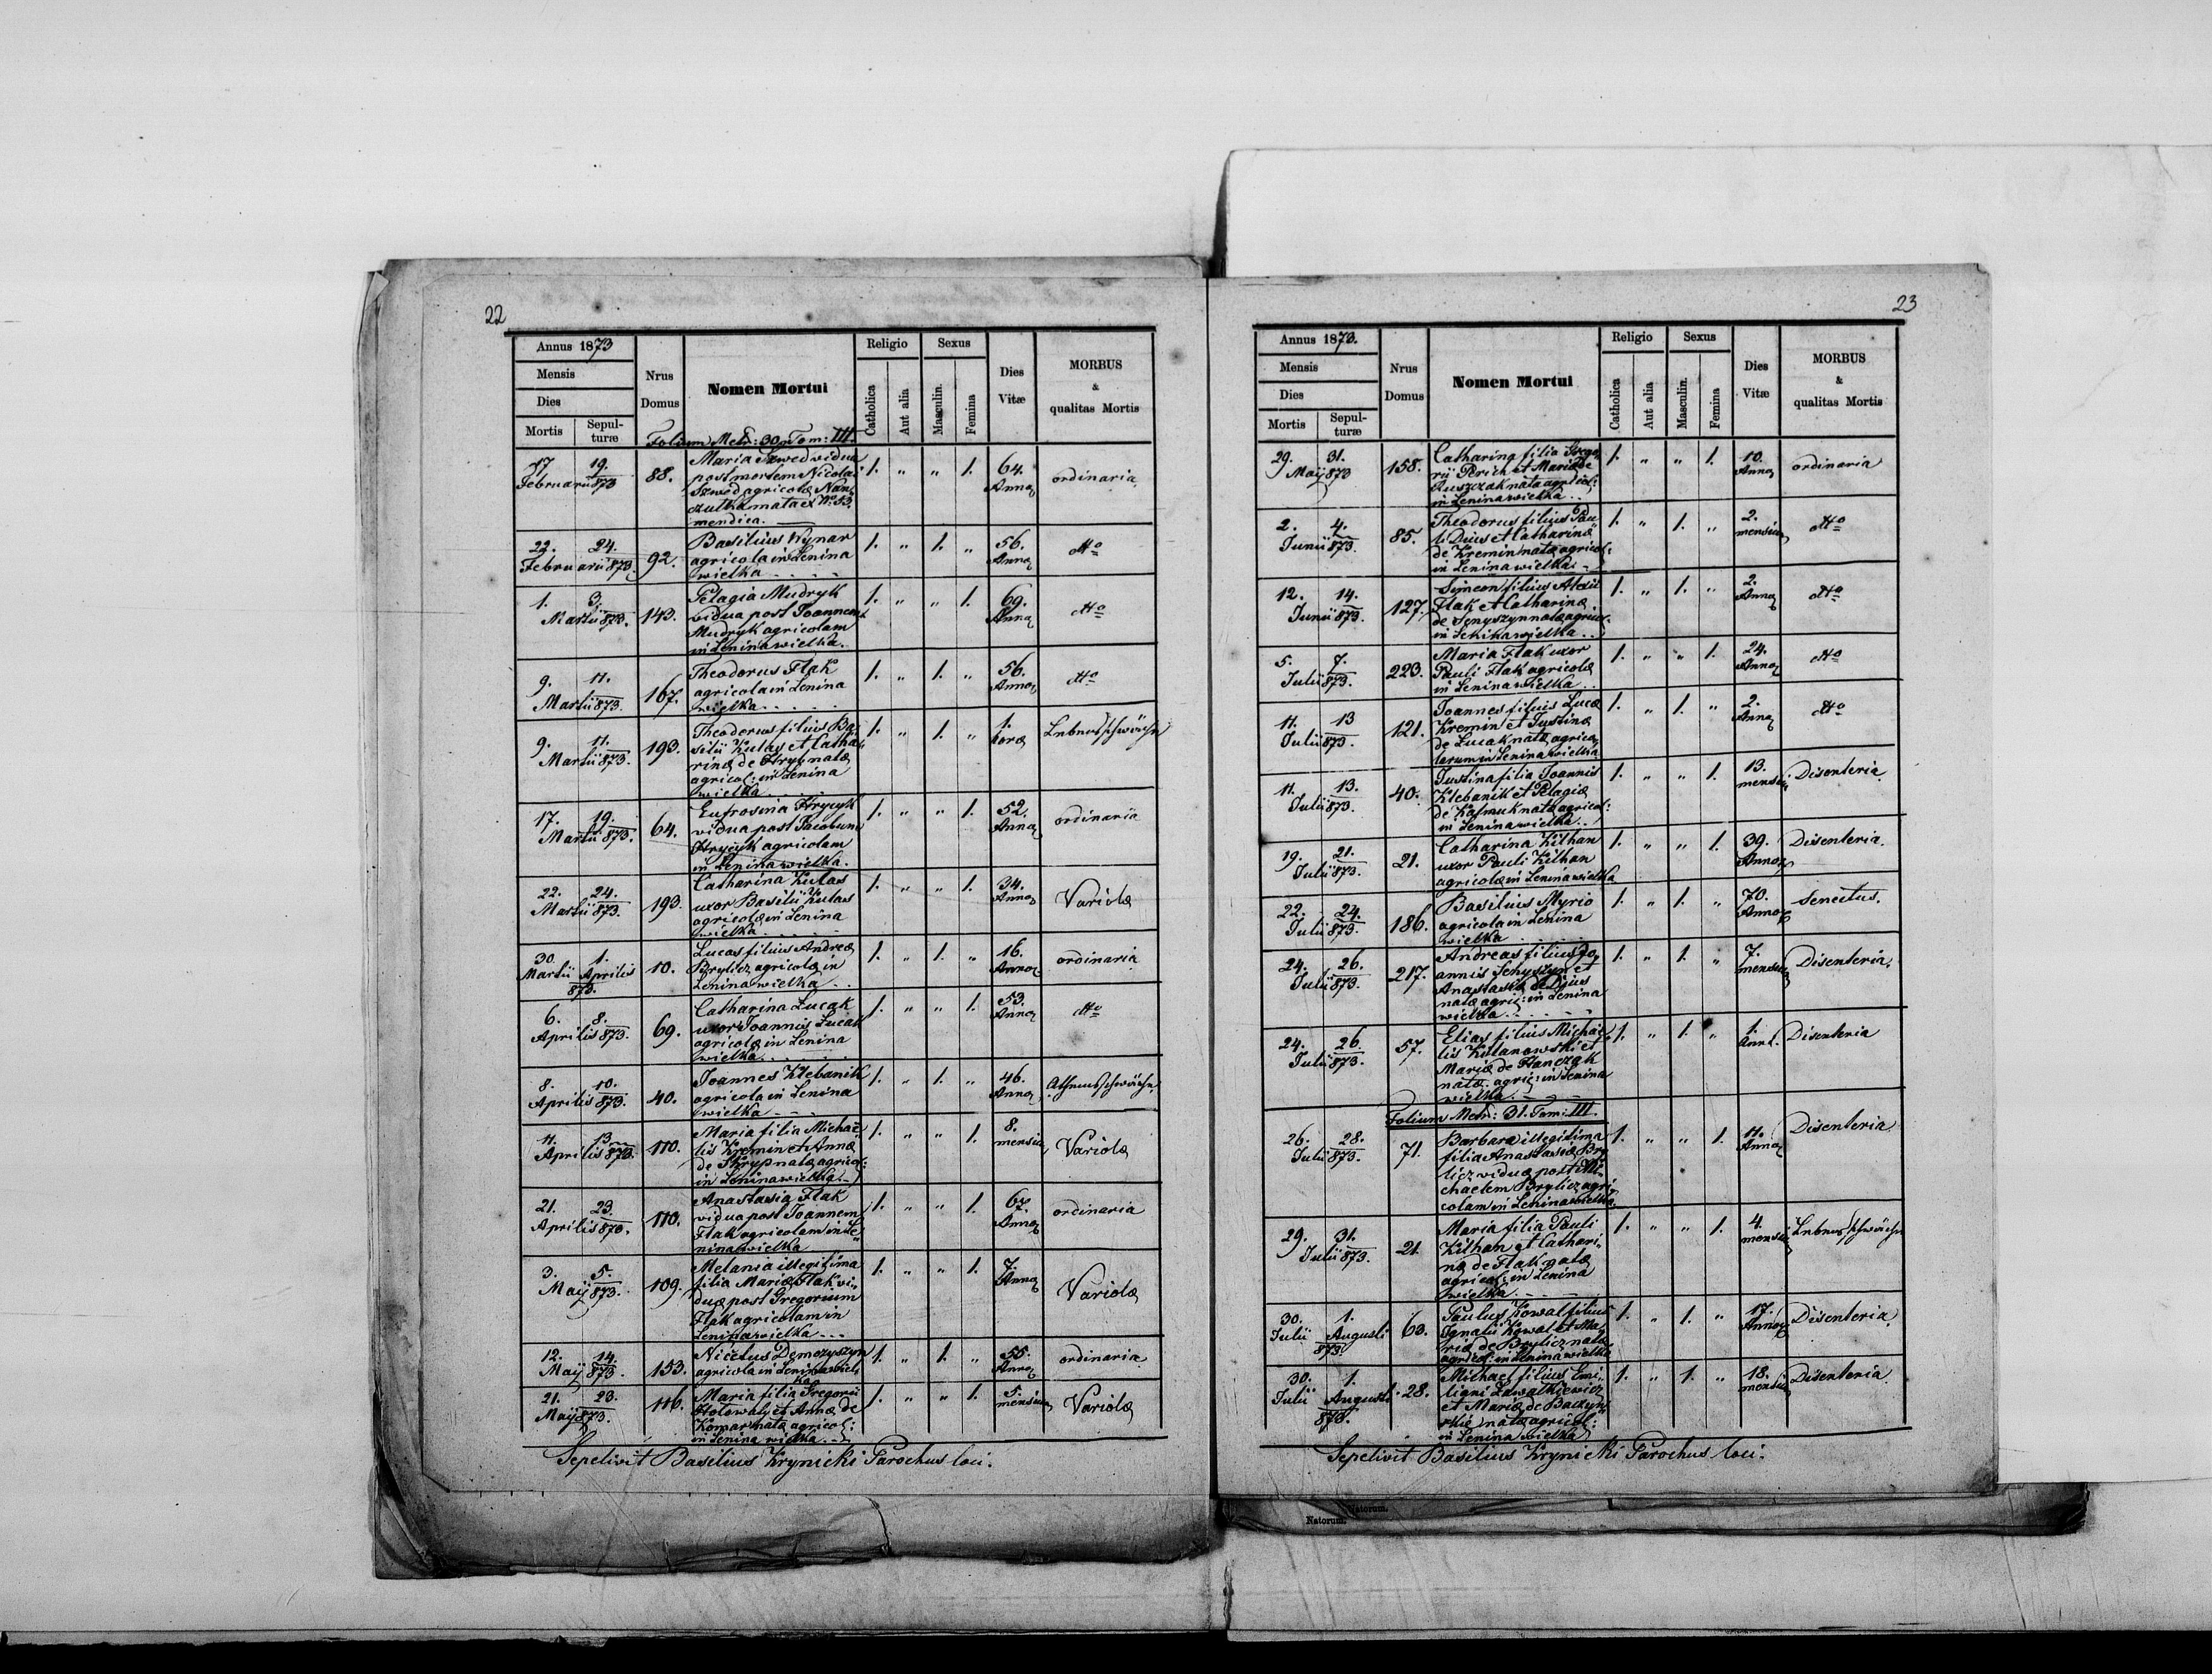 22
Annus 1873
Mensis
Dies
Mortis
Sepul-
turæ
Nrus
Domus
Nomen Mortui
Religio
Catholica
Aut alia
Sexus
Masculin.
Femina
Dies
Vitæ
MORBUS
&
qualitas Mortis
Folium Metr: 30. Tom: III.
17. 19.
Februarii 873
88.
Maria Szwed vidua
post mortem Nicolai
Szwed agricolæ Nan-
czutka nata ex Nº 53.
mendica.
1. „ „ 1.
64.
Annor
ordinaria
22. 24.
Februarii 873.
92.
Basilius Wynar
agricola in Lenina
wielka
1. „ 1. „
56.
Annor
dtto
1. 3.
Martii 873.
143.
Pelagia Mudryk
vidua post Joannem
Mudryk agricolam
in Lenina wielka.
1. „ „ 1.
69.
Annor
dtto
9. 11.
Martii 873.
167.
Theodorus Flak
agricola in Lenina
wielka
1. „ 1. „
56.
Annor
dtto
9. 11.
Martii 873.
193.
Theodorus filius Ba-
silii Kulas et Catha-
rinæ de Hryp natæ
agricol: in Lenina
wielka
1. „ 1. „
1.
horæ
Lebensschwäche
17. 19.
Martii 873.
64.
Eufrosina Hrycyk
vidua post Jacobum
Hrycyk agricolam
in Lenina wielka.
1. „ „ 1.
52.
Annor
ordinaria
22. 24.
Martii 873.
193.
Catharina Kulas
uxor Basilii Kulas
agricolæ in Lenina
wielka
1. „ „ 1.
34.
Annor
Variolæ
30. 1.
Martii Aprilis
873.
10.
Lucas filius Andreæ
Brylicz agricolæ in
Lenina wielka
1. „ 1. „
16.
Annor
ordinaria
6. 8.
Aprilis 873.
69.
Catharina Łucak
uxor Joannis Łucak
agricolæ in Lenina
wielka
1. „ „ 1.
53.
Annor
dtto
8. 10.
Aprilis 873.
40.
Joannes Klebanik
agricola in Lenina
wielka
1. „ 1. „
46.
Annor
11. 13
Aprilis 873.
110.
Maria filia Michaë-
lis Kremin et Annæ
de Hryp natæ agricol:
in Lenina wielka
1. „ „ 1.
8.
mensium
Variolæ
21. 23.
Aprilis 873.
110.
Anastasia Flak
vidua post Joannem
Flak agricolam in Le-
nina wielka
1. „ „ 1.
67.
Annor
ordinaria
3. 5.
Maij 873.
109.
Melania illegitima
filia Mariæ Flak vi-
duæ post Gregorium
Flak agricolam in
Lenina wielka
1. „ „ 1.
7.
Annor
Variolæ
12. 14.
Maij 873.
153.
Nicetus Demczyszyn
agricola in Lenina wiel-
ka
1. „ 1. „
55.
Annor
ordinaria
21. 23.
Maij 873.
116.
Maria filia Gregorii
Hołowaty et Annæ de
Komar natæ agricol:
in Lenina wielka
1. „ „ 1.
5.
mensium
Variolæ
Sepelivit Basilius Krynicki Parochus loci.
23
Annus 1873.
Mensis
Dies
Mortis
Sepul-
turæ
Nrus
Domus
Nomen Mortui
Religio
Catholica
Aut alia
Sexus
Masculin.
Femina
Dies
Vitæ
MORBUS
&
qualitas Mortis
29. 31.
Maij 873
158.
Catharina filia Grego-
rii Perich et Mariæ de
Ruszczak nata agricol:
in Lenina wielka
1. „ „ 1.
10.
Annor
ordinaria
2. 4.
Junii 873.
85.
Theodorus filius Pau-
li Dzius et Catharinæ
de Kremin natæ agricol:
in Lenina wielka
1. „ 1. „
2.
mensium
dtto
12. 14.
Junii 873.
127.
Simeon filius Alexii
Flak et Catharinæ
de Senyszyn natæ agricol.
in Lenina wielka
1. „ 1. „
2.
Annor
dtto
5. 7.
Julii 873.
223.
Maria Flak uxor
Pauli Flak agricolæ
in Lenina wielka
1. „ „ 1.
24.
Annor
dtto
11. 13
Julii 873.
121.
Joannes filius Lucæ
Kremin et Justinæ
de Łucak natæ agrico-
larum in Lenina wielka
1. „ 1. „
2.
Annor
dtto
11. 13.
Julii 873.
40.
Justina filia Joannis
Klebanik et Pelagiæ
de Kaśmuk natæ agricol:
in Lenina wielka
1. „ „ 1.
13.
mensium
Disenteria
19. 21.
Julii 873.
21.
Catharina Kilhan
uxor Pauli Kilhan
agricolæ in Lenina wielka
1. „ „ 1.
39.
Annor
Disenteria.
22. 24.
Julii 873.
186.
Basilius Myrio
agricola in Lenina
wielka
1. „ 1. „
70.
Annor
Senectus.
24. 26.
Julii 873.
217.
Andreas filius Jo-
annis Senyszyn et
Anastasiæ de Dzius
natæ agric: in Lenina
wielka
1. „ 1. „
7.
mensium
Disenteria.
24. 26.
Julii 873.
57.
Elias filius Michaë-
lis Kulanowski et
Mariæ de Hanczak
natæ agric: in Lenina
wielka
1. „ 1. „
1.
Anni.
Disenteria
Folium Metr: 31. Tom: III.
26. 28.
Julii 873.
71.
Barbara illegitima
filia Anastasiæ Bry-
licz viduæ post Mi-
chaelem Brylicz agri-
colam in Lenina wielka
1. „ „ 1.
11.
Annor
Disenteria
29. 31.
Julii 873.
21.
Maria filia Pauli
Kilhan et Cathari-
næ de Flak natæ
agricol: in Lenina
wielka
1. „ „ 1.
4.
mensium
Lebensschwäche
30. 1.
Julii Augusti
873.
63.
Paulus Kowal filius
Ignatii Kowal et Ma-
riæ de Brylicz natæ
agricol: in Lenina wielka
1. „ 1. „
17.
Annor
Disenteria
30. 1.
Julii Augusti
873.
28.
Michael filius Emi-
liani Ławatkiewicz
et Mariæ de Baczyń-
skie natæ agricol:
in Lenina wielka
1. „ 1. „
18.
mensium
Disenteria
Sepelivit Basilius Krynicki Parochus loci.
Natorum.
Natorum.